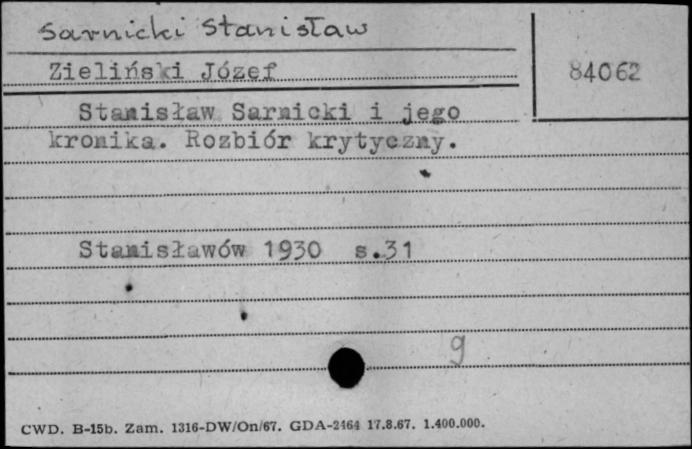 Sarnicki Stanisław
Zieliński Józef
84062
Stanisław Sarnicki i jego
kronika. Rozbiór krytyczny.
Stanisławów 1930 s.31
g
CWD. B-15b. Zam. 1316-DW/On/67. GDA-2464 17.8.67. 1.400.000.